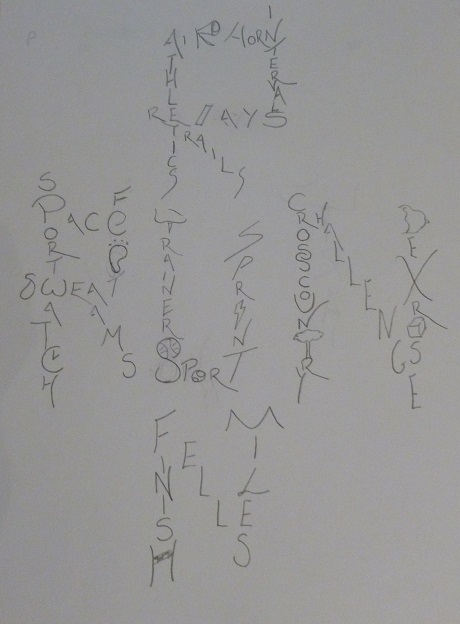 AIR HORN
INTERVALS
ATHLETICS
RELAYS
TRAILS
SPORTWATCH
PACE
FEET
SWEAT
TEAMS
TRAINERS
SPRINT
SPORT
CROSSCOUNTRY
CHALLENGE
DEXROSE
FINISH
FELLS
MILES